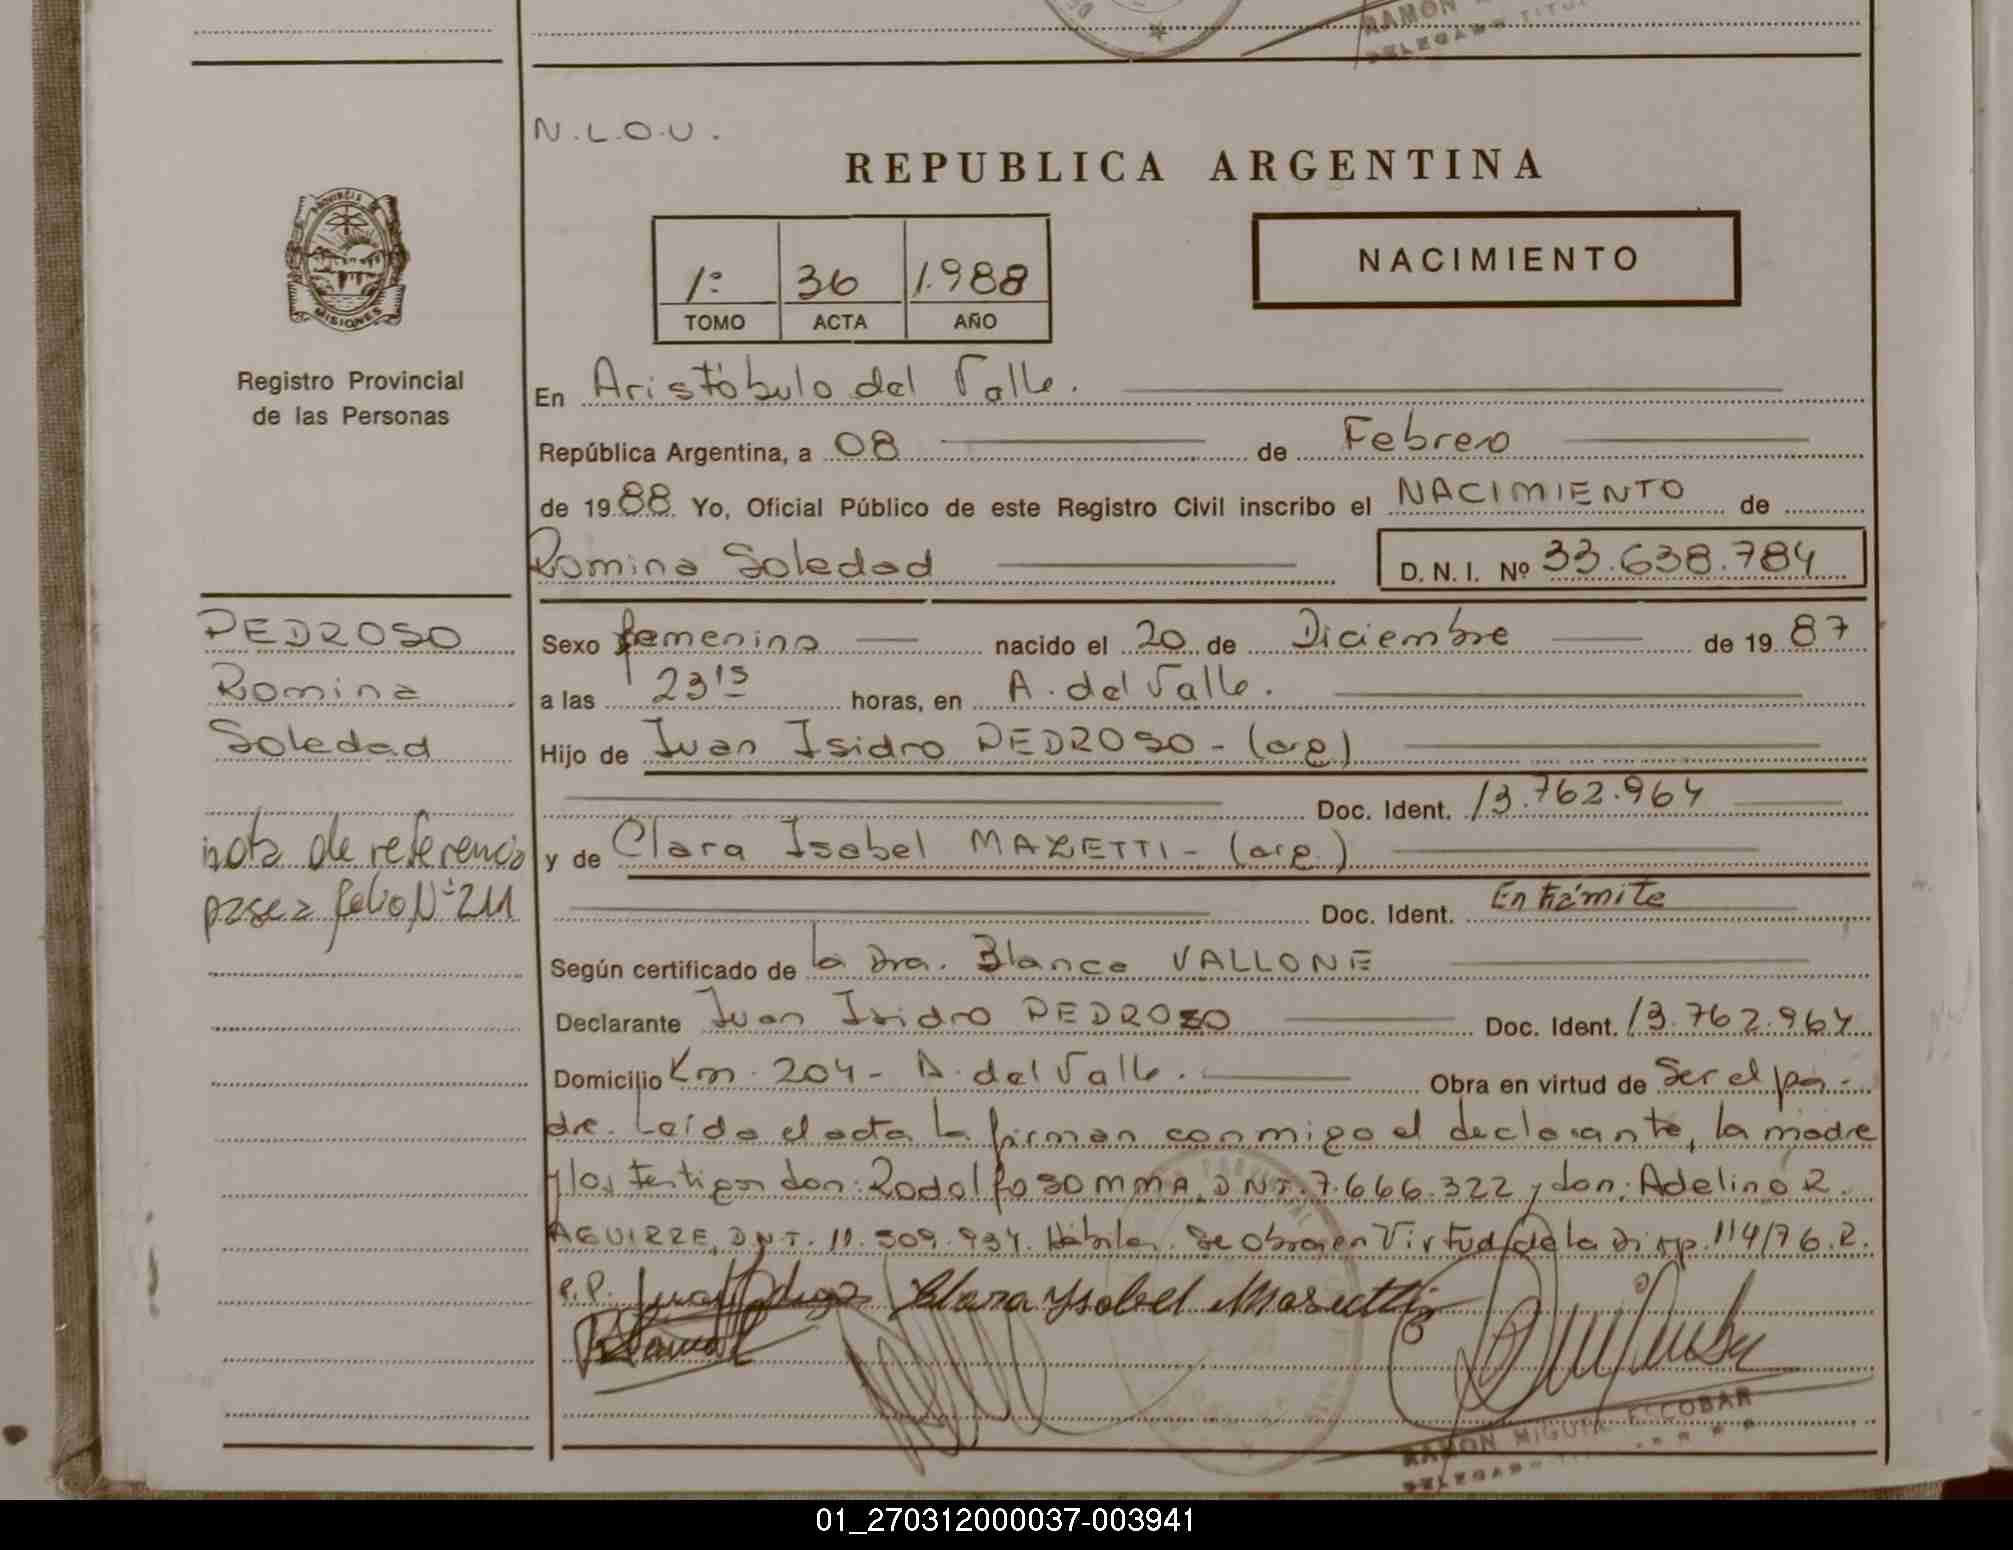 RAMON
DELEGADO TITU
N.L.O.U.
REPUBLICA ARGENTINA
PROVINCIA DE
MISIONES
1º 36 1.988
TOMO ACTA AÑO
NACIMIENTO
Registro Provincial
de las Personas
En Aristóbulo del Valle.
República Argentina, a 08 de Febrero
de 1988 Yo, Oficial Público de este Registro Civil inscribo el NACIMIENTO de
Romina Soledad D. N. I. Nº 33.638.784
PEDROSO
Romina
Soledad
nota de referencia
pase a folio Nº 211
Sexo femenino nacido el 20 de Diciembre de 1987
a las 23 15 horas, en A. del Valle.
Hijo de Juan Isidro PEDROSO - (arg)
Doc. Ident. 13.762.964
y de Clara Isabel MAZETTI - (arg.)
Doc. Ident. En trámite
Según certificado de la Dra. Blanca VALLONE
Declarante Juan Isidro PEDROSO Doc. Ident. 13.762.964
Domicilio Km. 204 - A. del Valle. Obra en virtud de Ser el pa-
dre. Leída el acta la firman conmigo el declarante, la madre
y los testigos don: Rodolfo SOMMA, DNI. 7.666.322 y don: Adelino R.
AGUIRRE, DNI. 11.509.934. Hábiles. Se obra en Virtud de la Disp. 114/76.R.
P.P. Clara Ysabel Masetti
RAMON MIGUEL ESCOBAR
DELEGADO
01_270312000037-003941